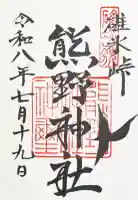 碓氷峠
熊野神社
令和八年七月十九日